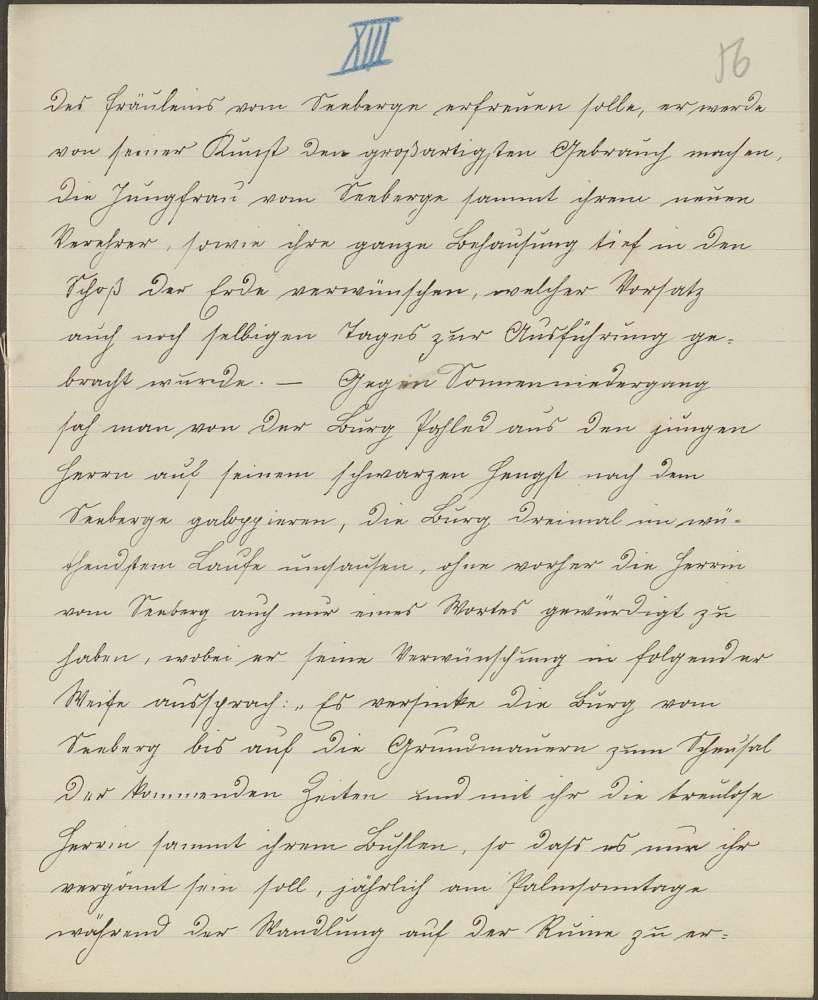 XIII
56
des Fräuleins vom Seeberge erfreuen solle, er werde
von seiner Kunst den großartigsten Gebrauch machen,
die Jungfrau vom Seeberge sammt ihrem neuen
Verehrer, sowie ihre ganze Behausung tief in den
Schoß der Erde verwünschen, welcher Vorsatz
auch noch selbigen Tages zur Ausführung ge-
bracht wurde. — Gegen Sonnenniedergang
sah man von der Burg Pohled aus den jungen
Herrn auf seinem schwarzen Hengst nach dem
Seeberge galoppieren, die Burg dreimal im wü-
thendstem Laufe umsausen, ohne vorher die Herrin
vom Seeberg auch nur eines Wortes gewürdigt zu
haben, wobei er seine Verwünschung in folgender
Weise aussprach: „Es versinke die Burg vom
Seeberg bis auf die Grundmauern zum Scheusal
der kommenden Zeiten und mit ihr die treulose
Herrin sammt ihrem Buhlen, so dass es nur ihr
vergönnt sein soll, jährlich am Palmsonntage
während der Wandlung auf der Ruine zu er-